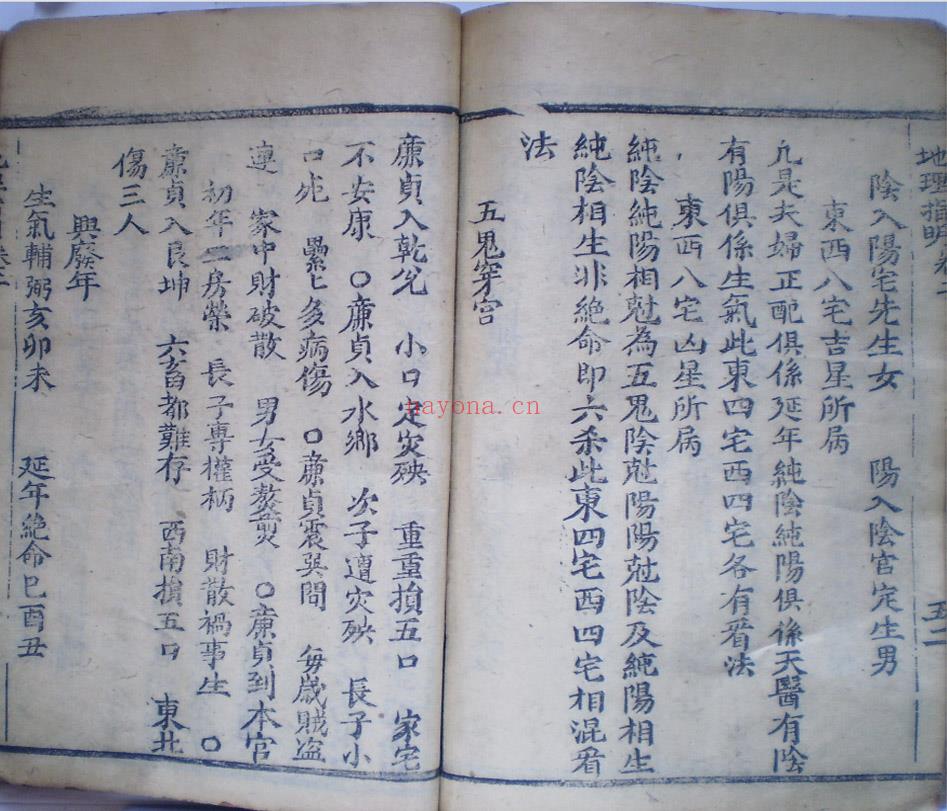 地理指明卷二
五二
陰入陽宅先生女　陽入陰宮定生男
東西八宅吉星所屬
凢是夫婦正配俱係延年純陰純陽俱係天醫有陰
有陽俱係生氣此東四宅西四宅各有看法
東西八宅凶星所屬
純陰純陽相尅為五鬼陰尅陽陽尅陰及純陽相生
純陰相生非絕命即六杀此東四宅西四宅相混看
法
五鬼穿宮
廉貞入乾兊　小口定灾殃　重重損五口　家宅
不安康　○廉貞入水鄉　次子遭灾殃　長子小
口死　纍匕多病傷　○廉貞震巽問　每歲賊盗
連　家中財破散　男女受熬煎　○廉貞到本宮
初年二房榮　長子專權柄　財散禍事生　○
廉貞入艮坤　六畜都難存　西南損五口　東北
傷三人
興廢年
生氣輔弼亥卯未　延年絕命巳酉丑
nayona.cn